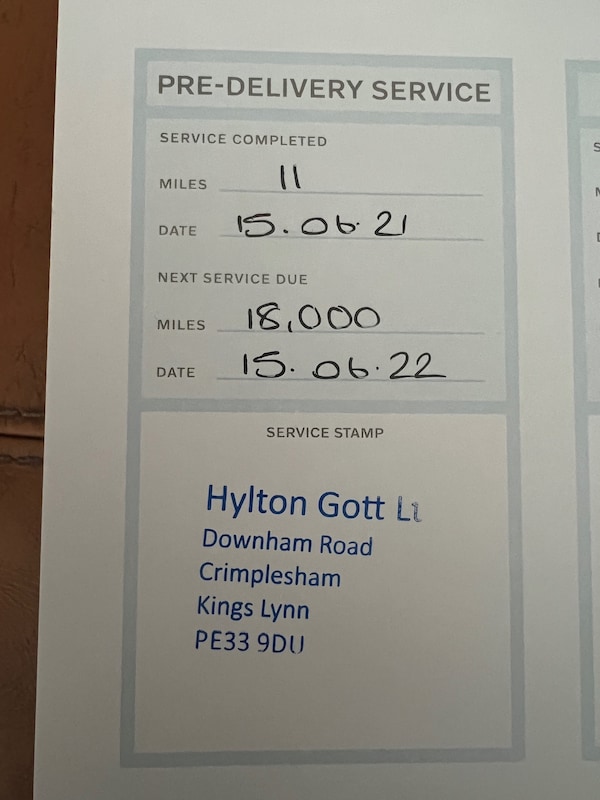 PRE-DELIVERY SERVICE
SERVICE COMPLETED
MILES 11
DATE 15.06.21
NEXT SERVICE DUE
MILES 18,000
DATE 15.06.22
SERVICE STAMP
Hylton Gott
Downham Road
Crimplesham
Kings Lynn
PE33 9DU